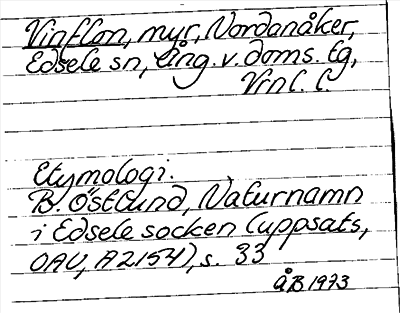 Vinflon, myr, Nordanåker,
Edsele sn, Ång. v. doms. tg,
Vrnl. l.
Etymologi.
B. Östlund, Naturnamn
i Edsele socken (uppsats,
OAU, A2154), s. 33
ÅB 1973